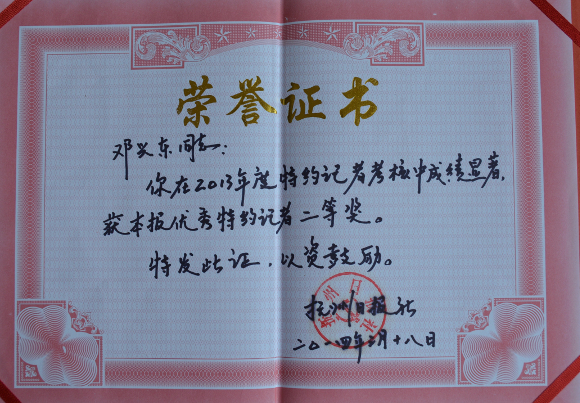 荣誉证书
邓兴东同志：
你在2013年度特约记者考核中成绩显著，
获本报优秀特约记者二等奖。
特发此证，以资鼓励。
抚州日报社
二〇一四年二月十八日